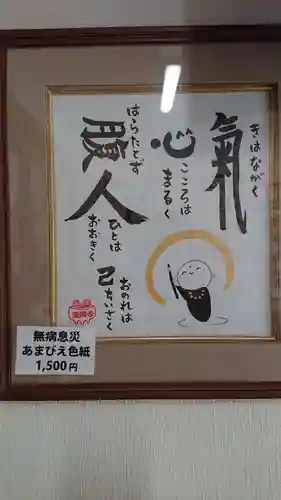 氣
きはながく
心
こころは
まるく
腹
はらたたず
人
ひとは
おおきく
己
おのれは
ちいさく
無病息災
あまびえ色紙
1,500円